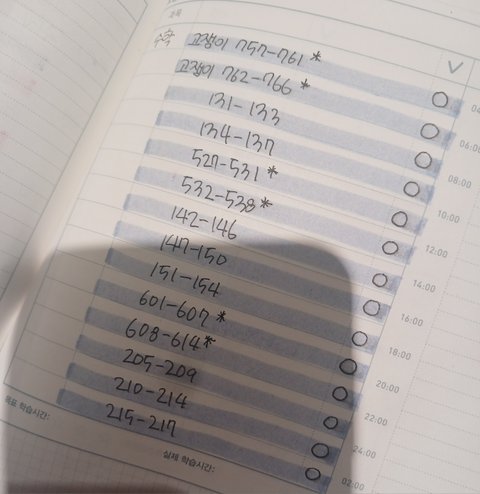 과목
수학
고쟁이 757-761 *
고쟁이 762-766 *
131-133
134-137
527-531 *
532-538 *
142-146
147-150
151-154
601-607 *
608-614 *
205-209
210-214
215-217
06:00
08:00
10:00
12:00
14:00
16:00
18:00
20:00
22:00
24:00
02:00
목표 학습시간:
실제 학습시간: